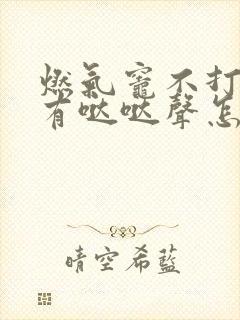 燃氣竈不打
有哒哒聲怎
晴空希藍